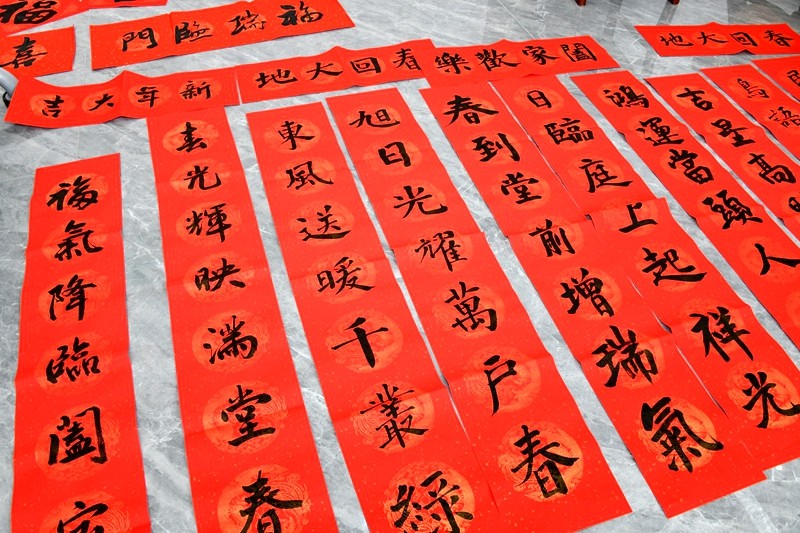 福
喜
福瑞臨門
新年大吉
春回大地
闔家歡樂
春回大地
福氣降臨闔家
光輝映滿堂春
東風送暖千叢綠
旭日光耀萬戶春
春到堂前增瑞氣
日臨庭上起祥光
鴻運當頭人
吉星高
鳥語